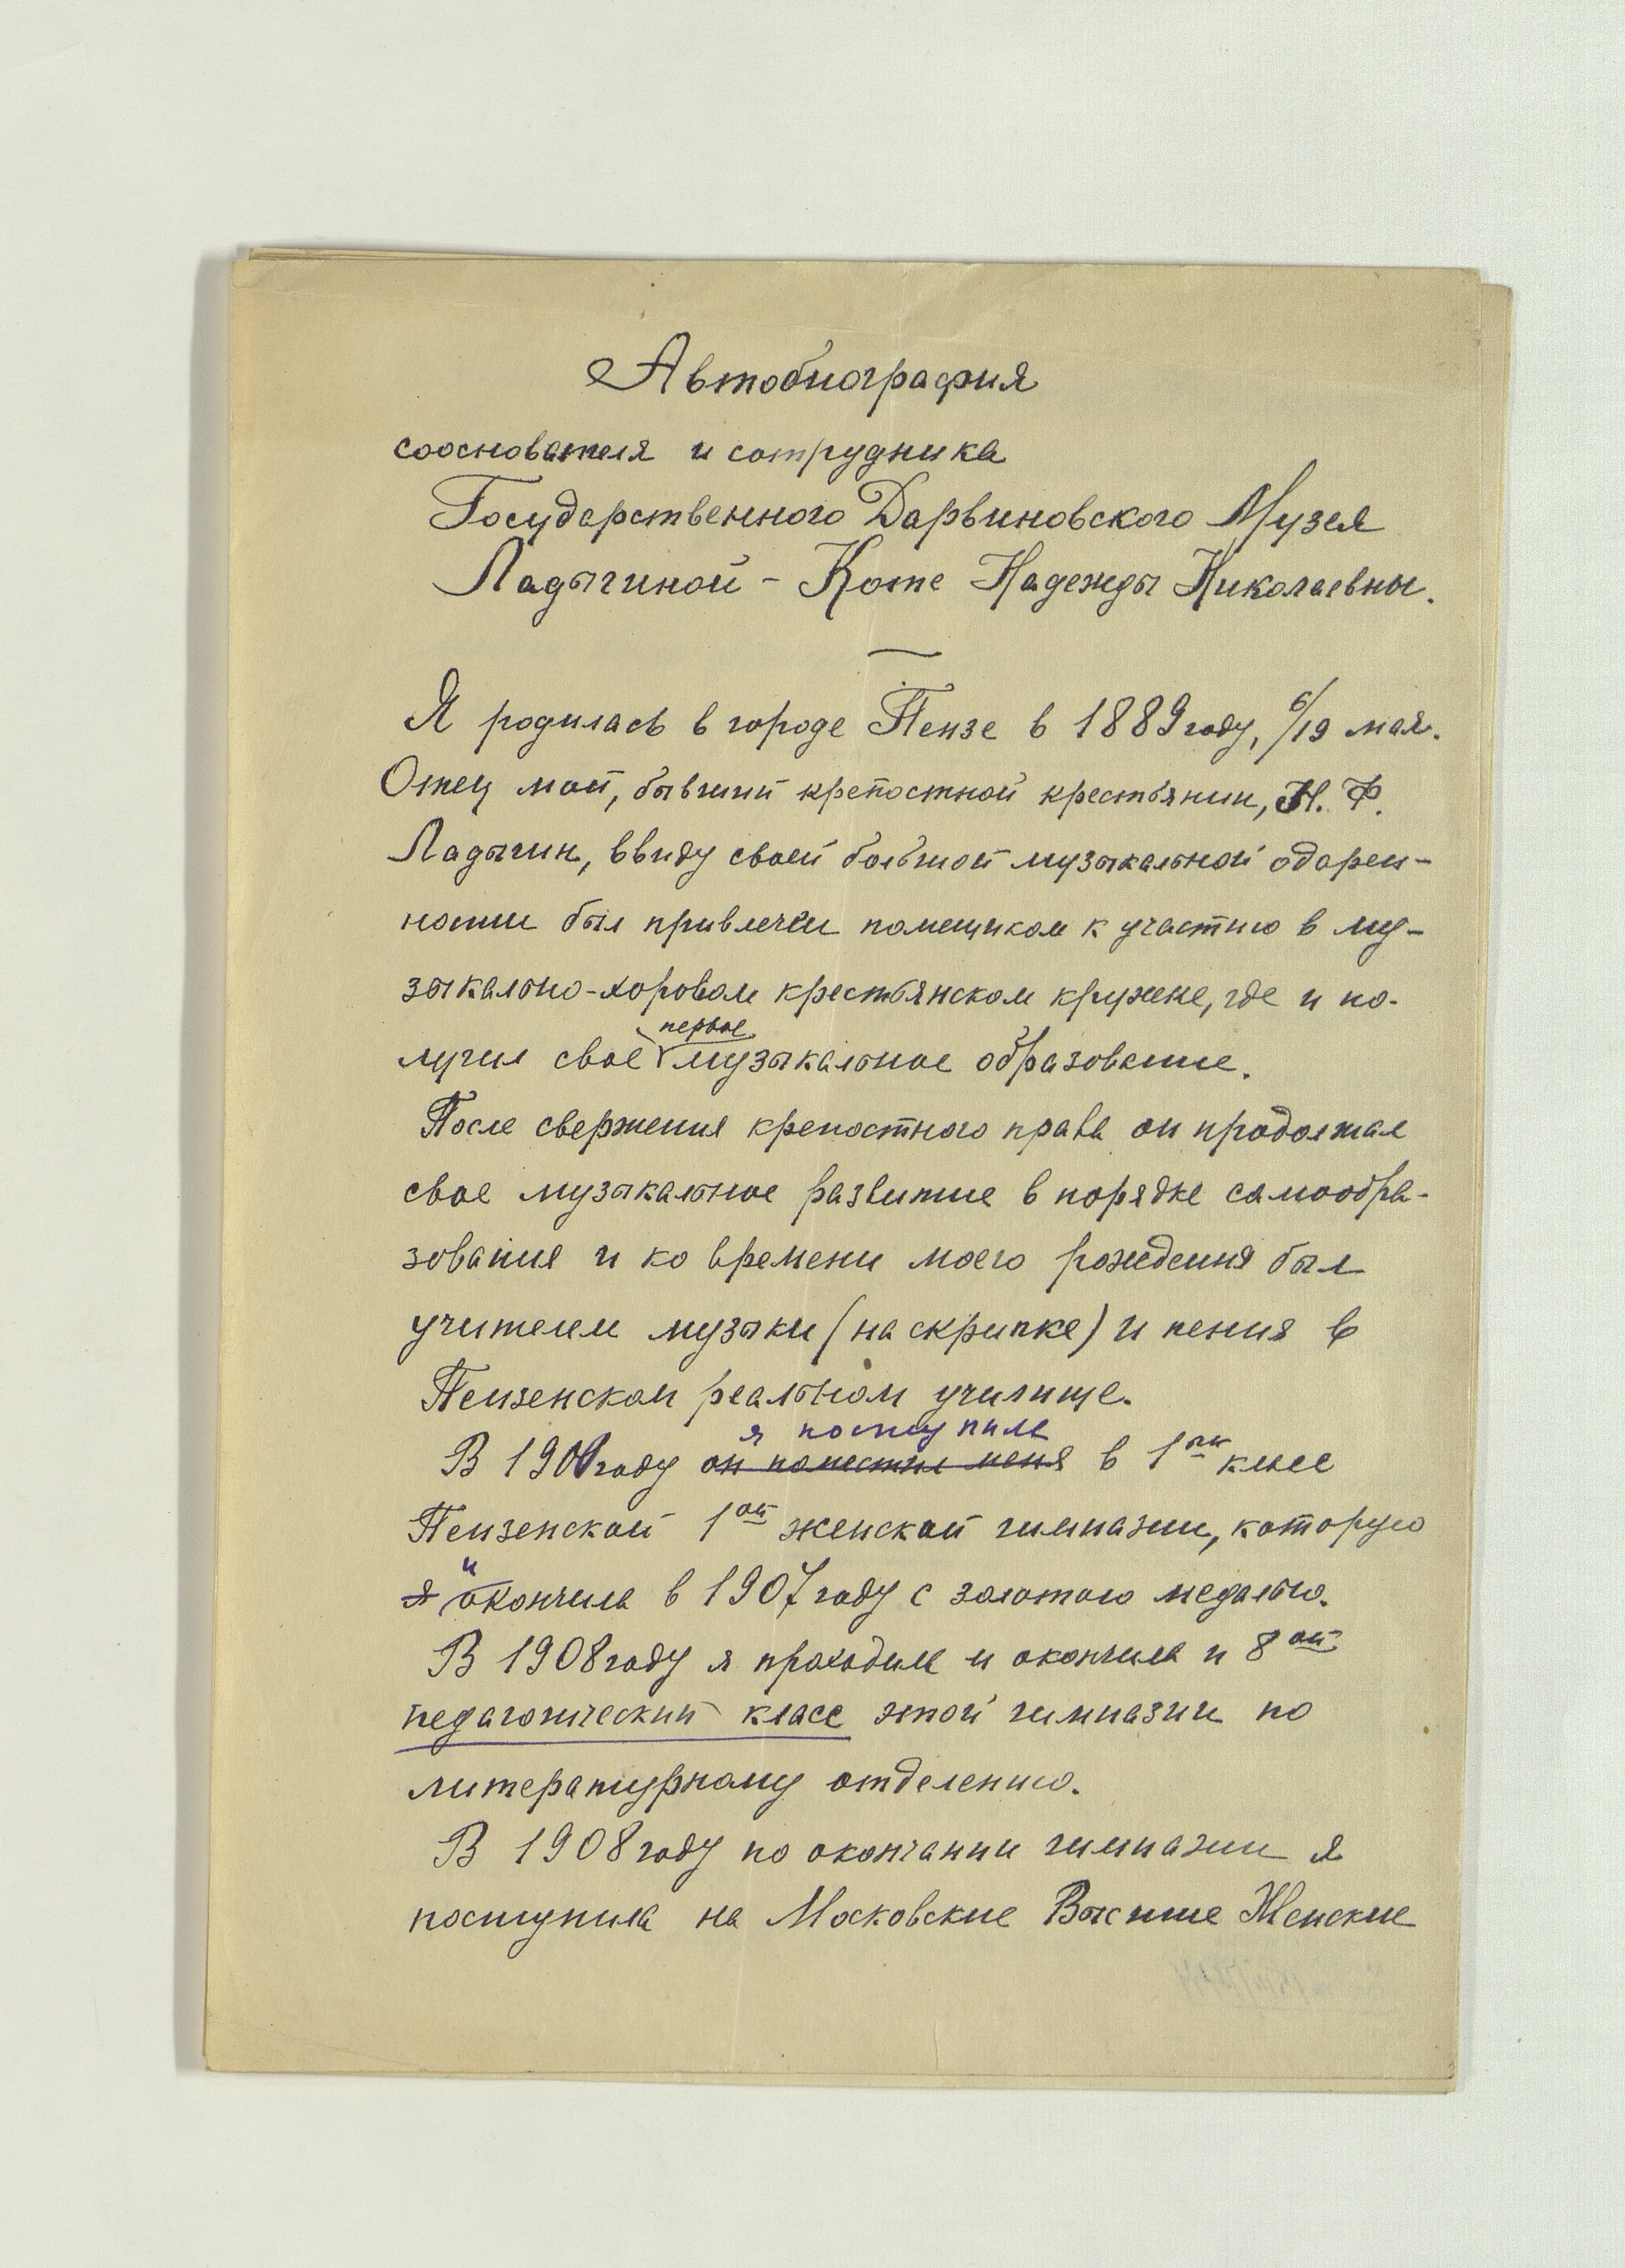 Автобиография
сооснователя и сотрудника
Государственного Дарвиновского Музея
Ладыгиной - Котс Надежды Николаевны.
Я родилась в городе Пензе в 1889 году, 6/19 мая.
Отец мой, бывший крепостной крестьянин, Н. Ф.
Ладыгин, ввиду своей большой музыкальной одарен-
ности был привлечён помещиком к участию в му-
зыкально-хоровом крестьянском кружке, где и по-
первое
лучил свое музыкальное образование.
После свержения крепостного права он продолжал
свое музыкальное развитие в порядке самообра-
зования и ко времени моего рождения был
учителем музыки (на скрипке) и пения в
Пензенском реальном училище.
я поступила
В 1901 году он поместил меня в 1ый класс
Пензенской 1ой женской гимназии, которую
и
я окончила в 1907 году с золотою медалью.
В 1908 году я проходила и окончила и 8ой
педагогический класс этой гимназии по
литературному отделению.
В 1908 году по окончании гимназии я
поступила на Московские Высшие Женские